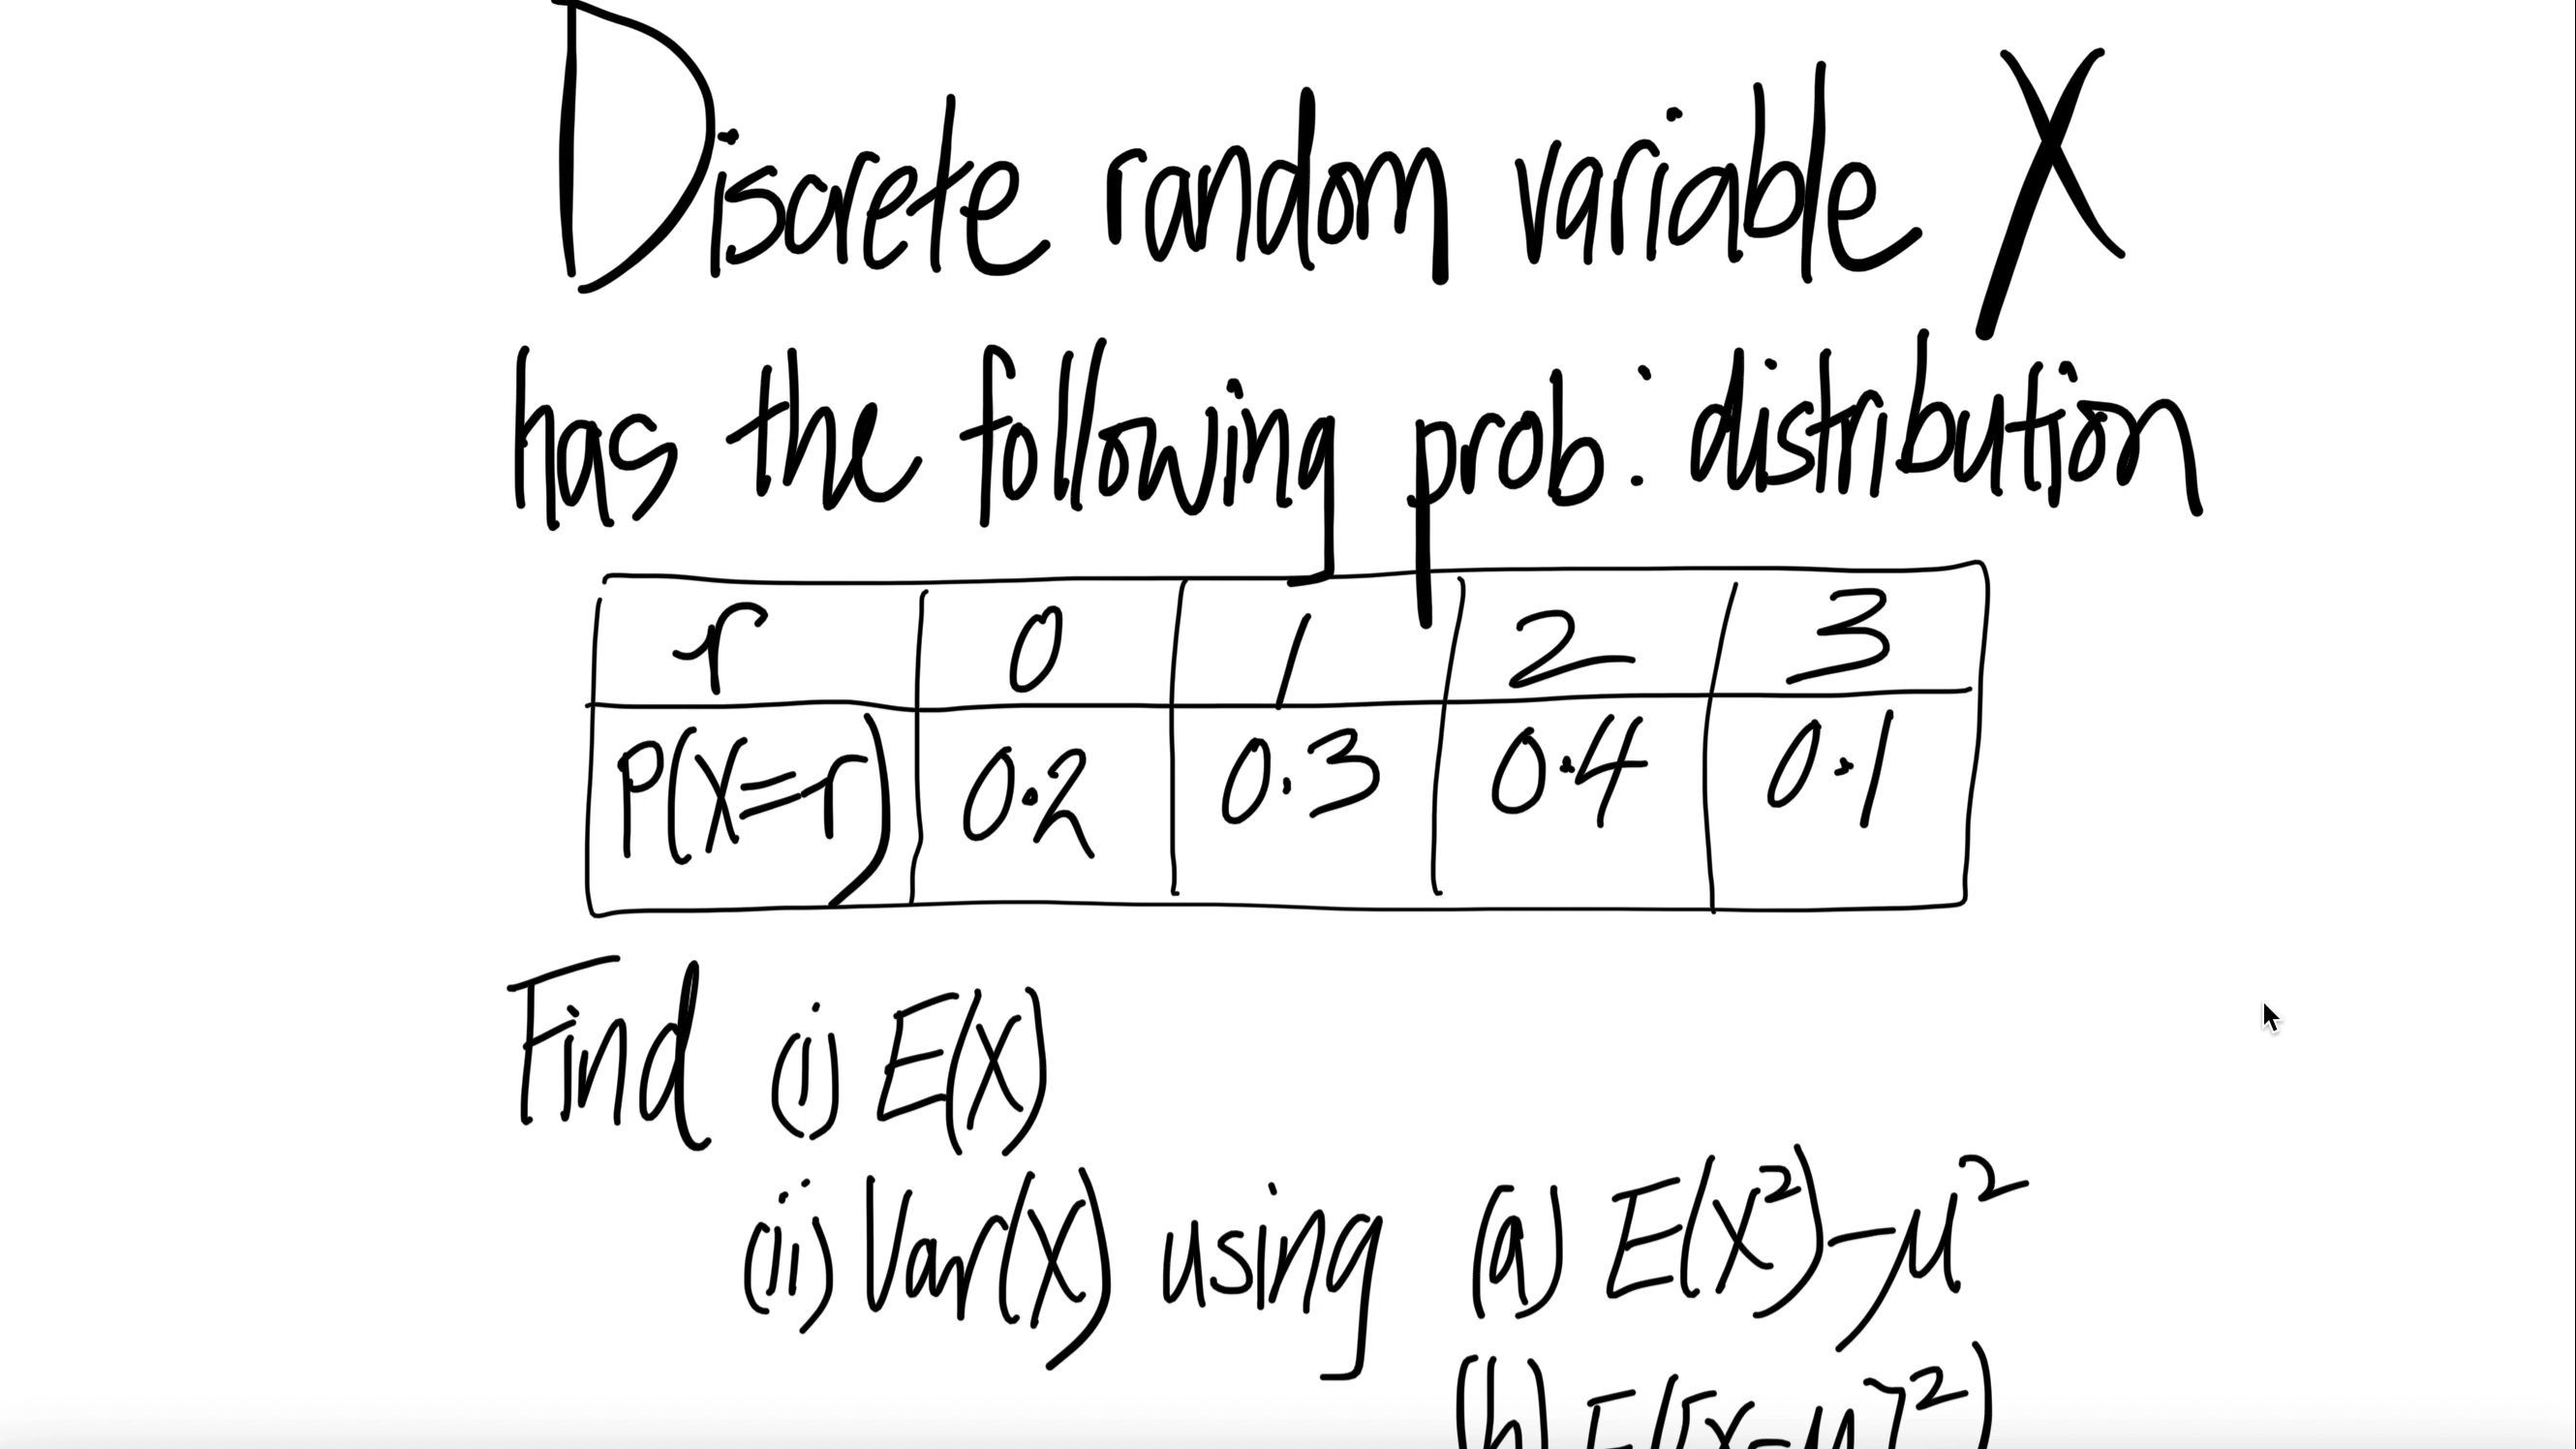 Discrete random variable X
has the following prob: distribution
r 0 1 2 3
P(X=r) 0.2 0.3 0.4 0.1
Find (i) E(X)
(ii) Var(X) using (a) E(X²)-μ²
(b) E([X-μ]²)